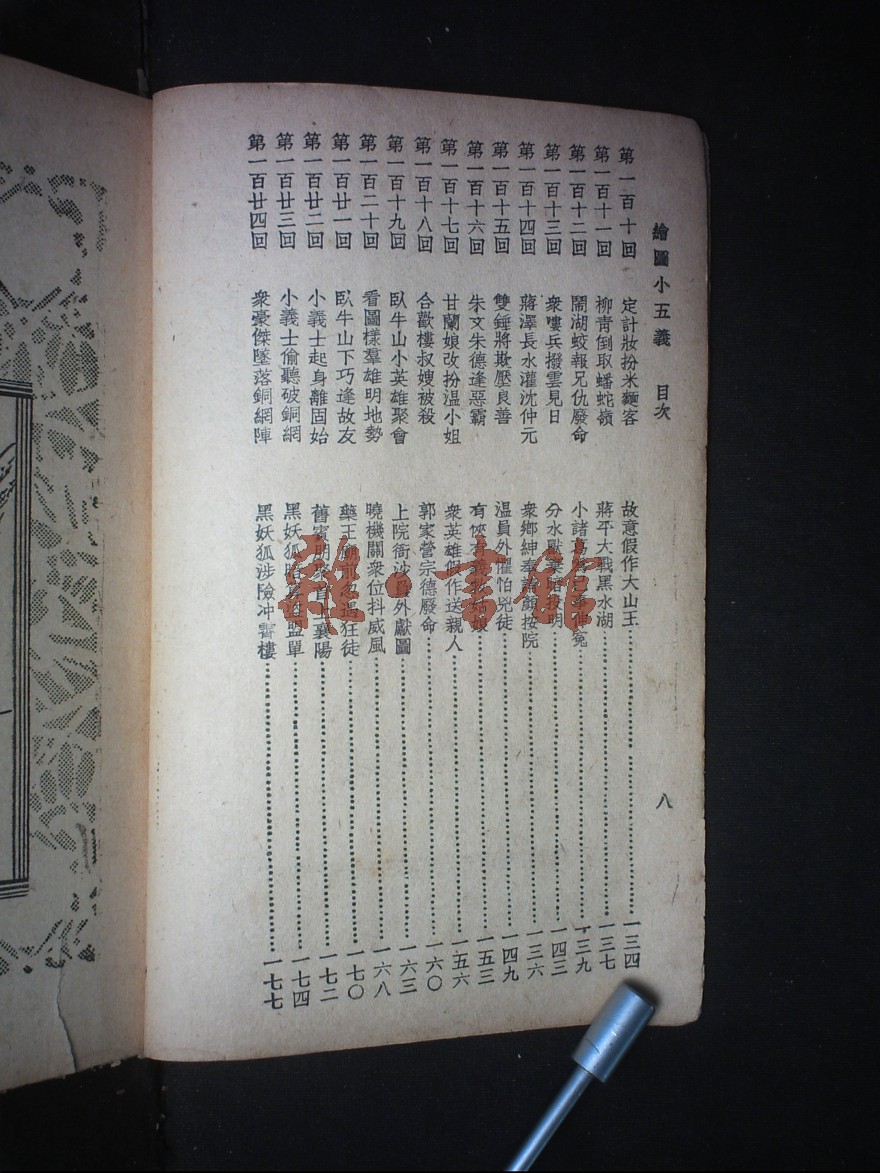 繪圖小五義 目次 八
第一百十回 定計妝扮米麵客 故意假作大山王 一三四
第一百十一回 柳青倒取蟠蛇嶺 蔣平大戰黑水湖 一三七
第一百十二回 鬧湖蛟報兄仇廢命 小諸葛己事冤 一三九
第一百十三回 衆嘍兵撥雲見日 分水獸棄暗投明 一四三
第一百十四回 蔣澤長水灌沈仲元 衆鄉紳奉請顏按院 一三六
第一百十五回 雙錘將欺壓良善 温員外懼怕兇徒 一四九
第一百十六回 朱文朱德逢惡霸 有俠有義救姑娘 一五三
第一百十七回 甘蘭娘改扮温小姐 衆英雄假作送親人 一五六
第一百十八回 合歡樓叔嫂被殺 郭家營宗德廢命 一六〇
第一百十九回 臥牛山小英雄聚會 上院衙沙員外獻圖 一六三
第一百二十回 看圖樣羣雄明地勢 曉機關衆位抖威風 一六八
第一百廿一回 臥牛山下巧逢故友 藥王廟前忽遇狂徒 一七〇
第一百廿二回 小義士起身離固始 舊賓朋聚首上襄陽 一七二
第一百廿三回 小義士偷聽破銅網 黑妖狐暗盟單 一七四
第一百廿四回 衆豪傑墜落銅網陣 黑妖狐涉險冲霄樓 一七七
雜·書館